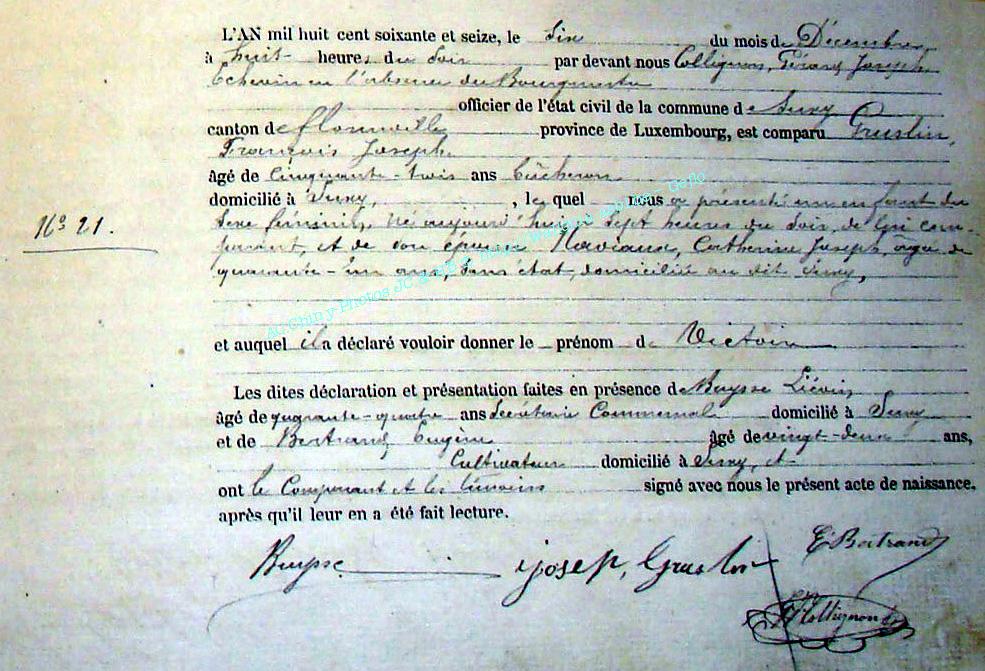 L'AN mil huit cent soixante et seize, le Six du mois de Décembre
à huit heures du Soir par devant nous Collignon, Gérard Joseph
Echevin en l'absence du Bourgmestre
officier de l'état civil de la commune de Suxy
canton de Florenville province de Luxembourg, est comparu Gruslin,
François Joseph,
âgé de Cinquante-trois ans bûcheron
domicilié à Suxy, , lequel nous a présenté un enfant du
Sexe féminin, né aujourd'hui à Sept heures du Soir, de lui com-
N° 21.
parant, et de son épouse Naviaux, Catherine Joseph, agée de
quarante-un ans, Sans état, domiciliée au dit Suxy,
Au Chiny Photos JC
et auquel il a déclaré vouloir donner le prénom de Victoire
Les dites déclaration et présentation faites en présence de Buysse Liévin,
âgé de quarante-quatre ans Secrétaire Communal domicilié à Suxy
et de Bertrand Eugène âgé de vingt-deux ans,
Cultivateur domicilié à Suxy, et
ont le Comparant et les témoins signé avec nous le présent acte de naissance,
après qu'il leur en a été fait lecture.
E Bertrand
Buysse josep, Gruslin
Collignon